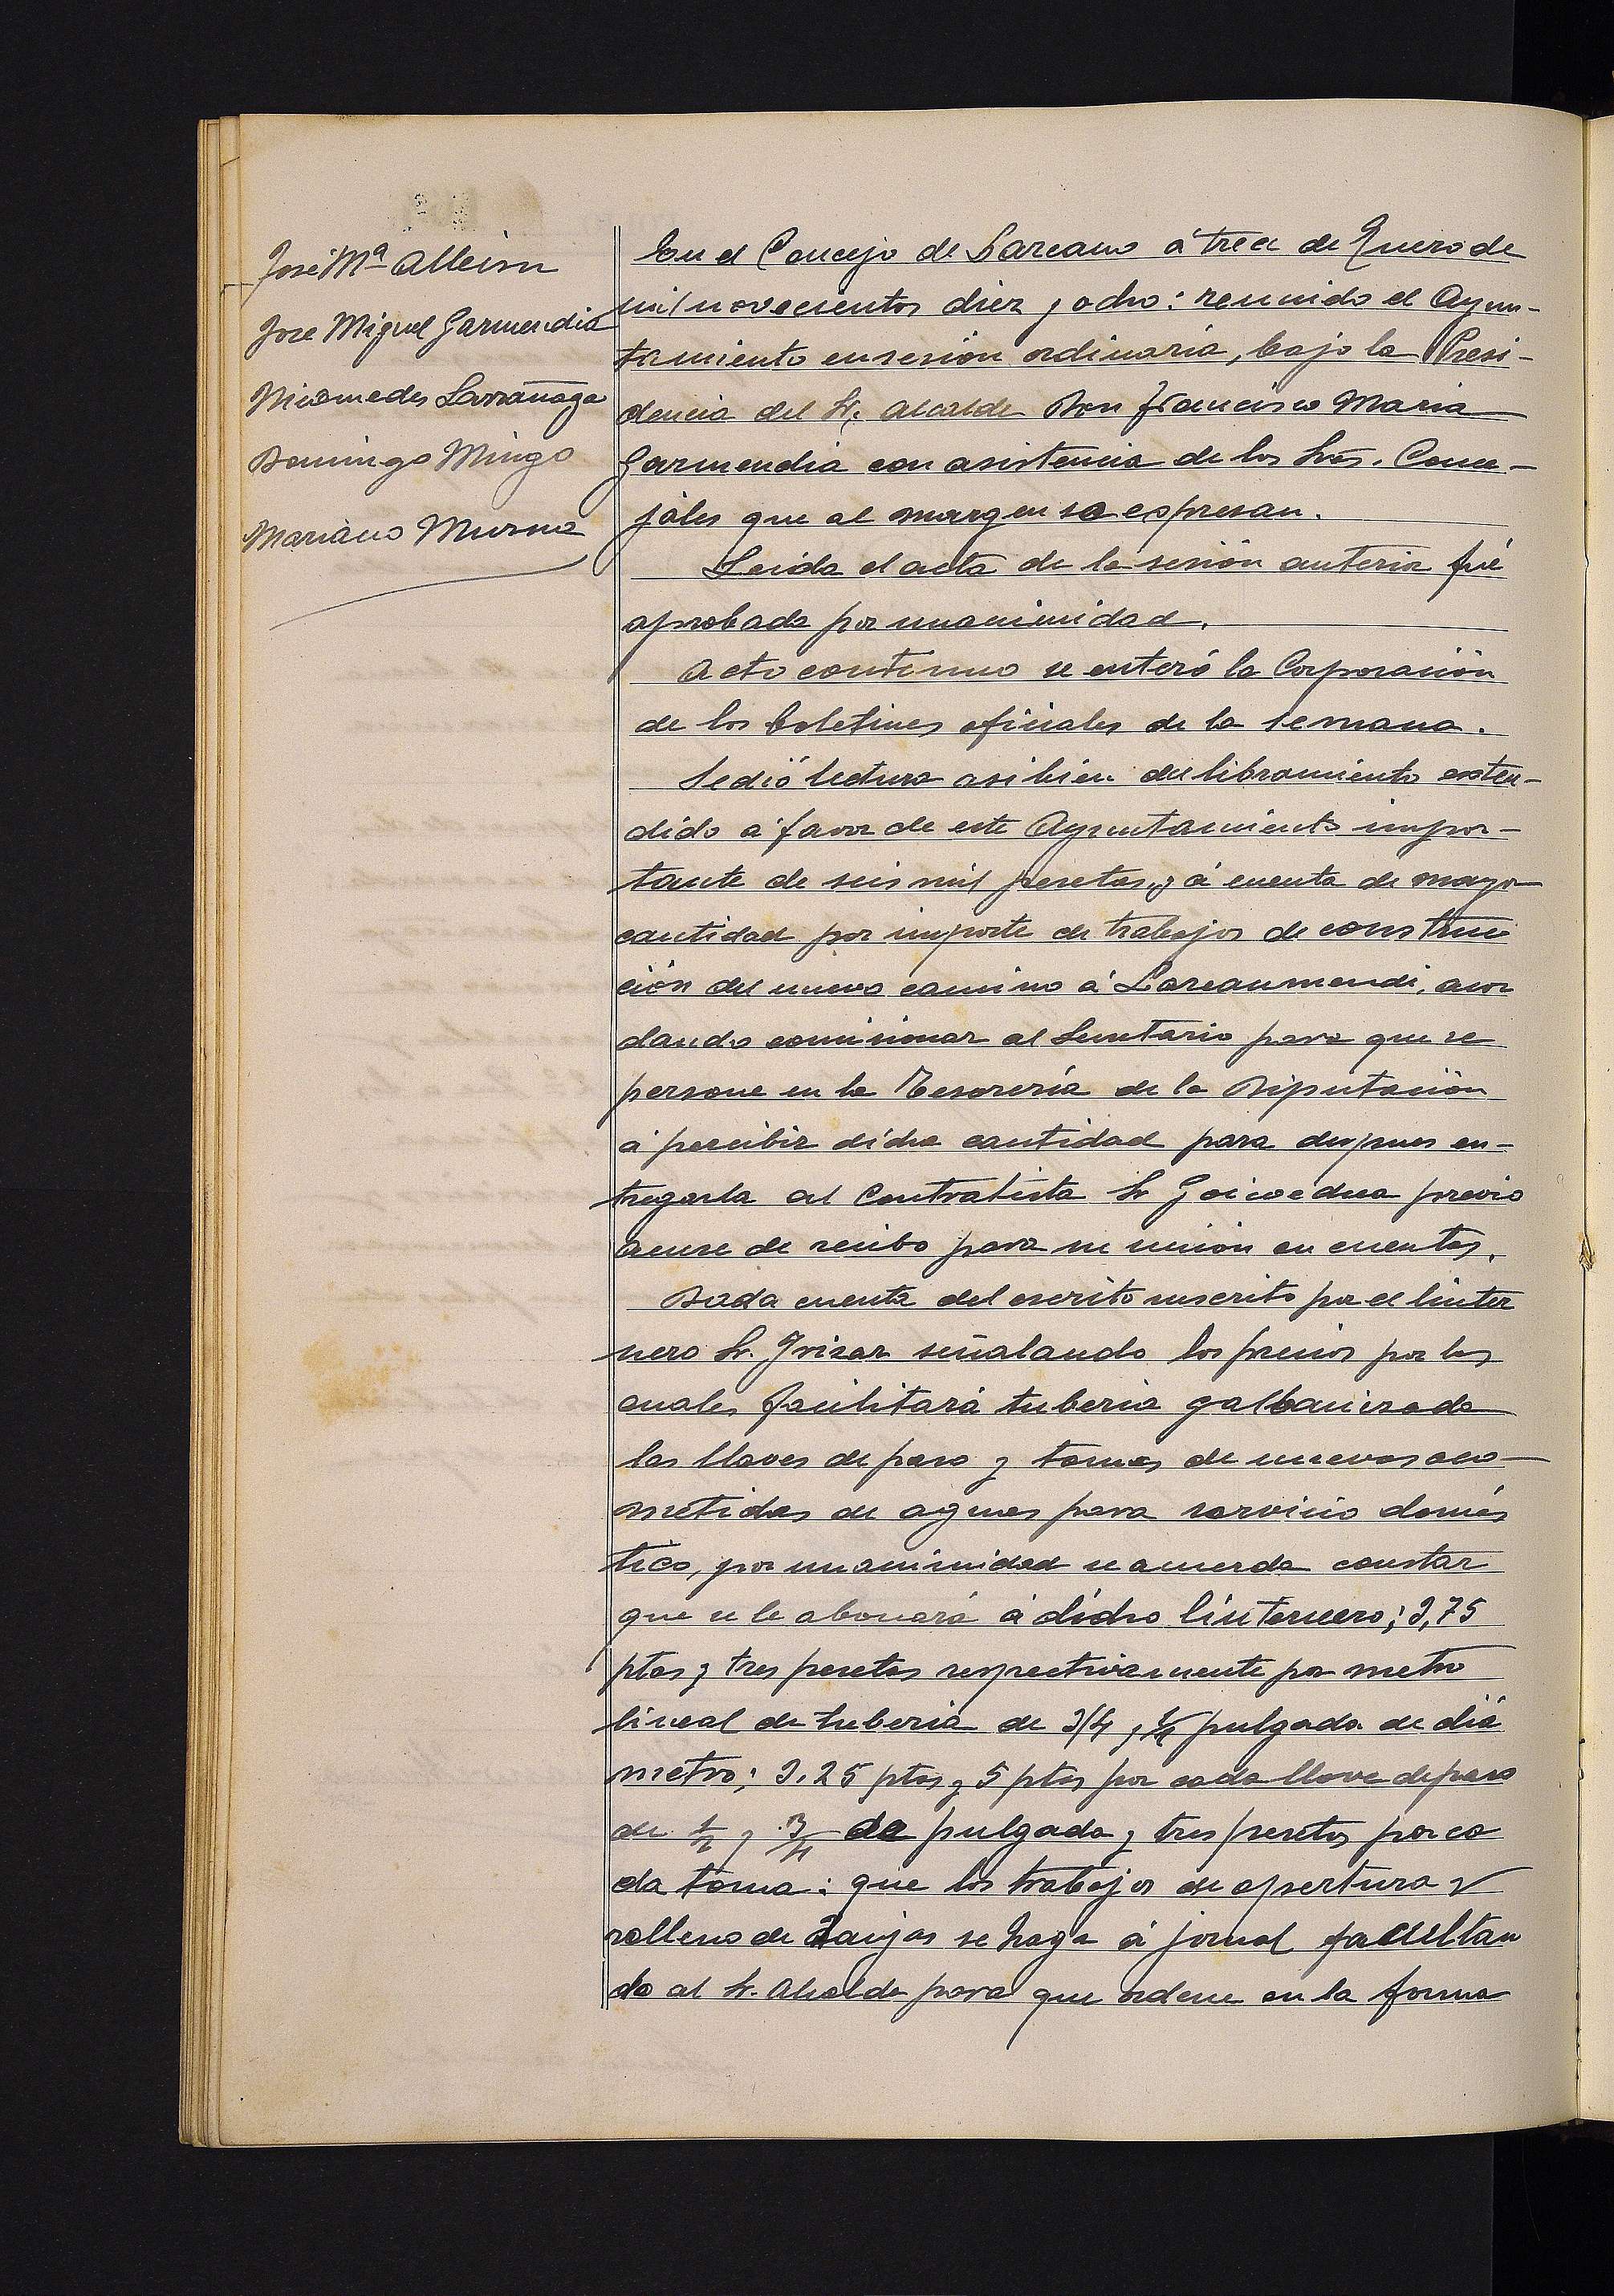 José Mª Alleisn
Jose Miguel Garmendia
Nicomedes Larrañaga
Domingo Mingo
Mariano Murua
En el Concejo de Larcano á trece de Enero de
mil novecientos diez y ocho: reunido el Ayun-
tamiento en sesión ordinaria, bajo la Presi-
dencia del Sr. Alcalde Don Francisco Maria
Garmendia con asistencia de los Sres. Conce-
jales que al margen se espresan.
Leida el acta de la sesión anterior fué
aprobada por unanimidad.
Acto continuo se enteró la Corporación
de los boletines oficiales de la semana.
Se dió lectura asi bien del libramiento exten-
dido á favor de este Ayuntamiento impor-
tante de seis mil pesetas, y á cuenta de mayor
cantidad por importe de trabajos de construc
ción del nuevo camino á Larcaumendi, acor
dando comisionar al Secretario para que se
persone en la Tesorería de la Diputación
á percibir dicha cantidad para despues en-
tregarla al Contratista Sr Goicoechea previo
acuse de recibo para su unión en cuentas.
Dada cuenta del escrito suscrito por el linter
nero Sr. Yrizar señalando los precios por los
cuales facilitará tuberia galbanizada
las llaves de paso y tomas de nuevas aco-
metidas de aguas para servicio domés
tico, por unanimidad se acuerda constar
que se le abonará á dicho linternero; 3,75
ptas y tres pesetas respectivamente por metro
lineal de tuberia de 3/4 y 1/2 pulgada de diá
metro; 3.25 ptas y 5 ptas por cada llave de paso
de 1/2 y 3/4 de pulgada y tres pesetas por ca
da toma: que los trabajos de apertura y
relleno de zanjas se haga á jornal facultan
do al Sr. Alcalde para que ordene en la forma